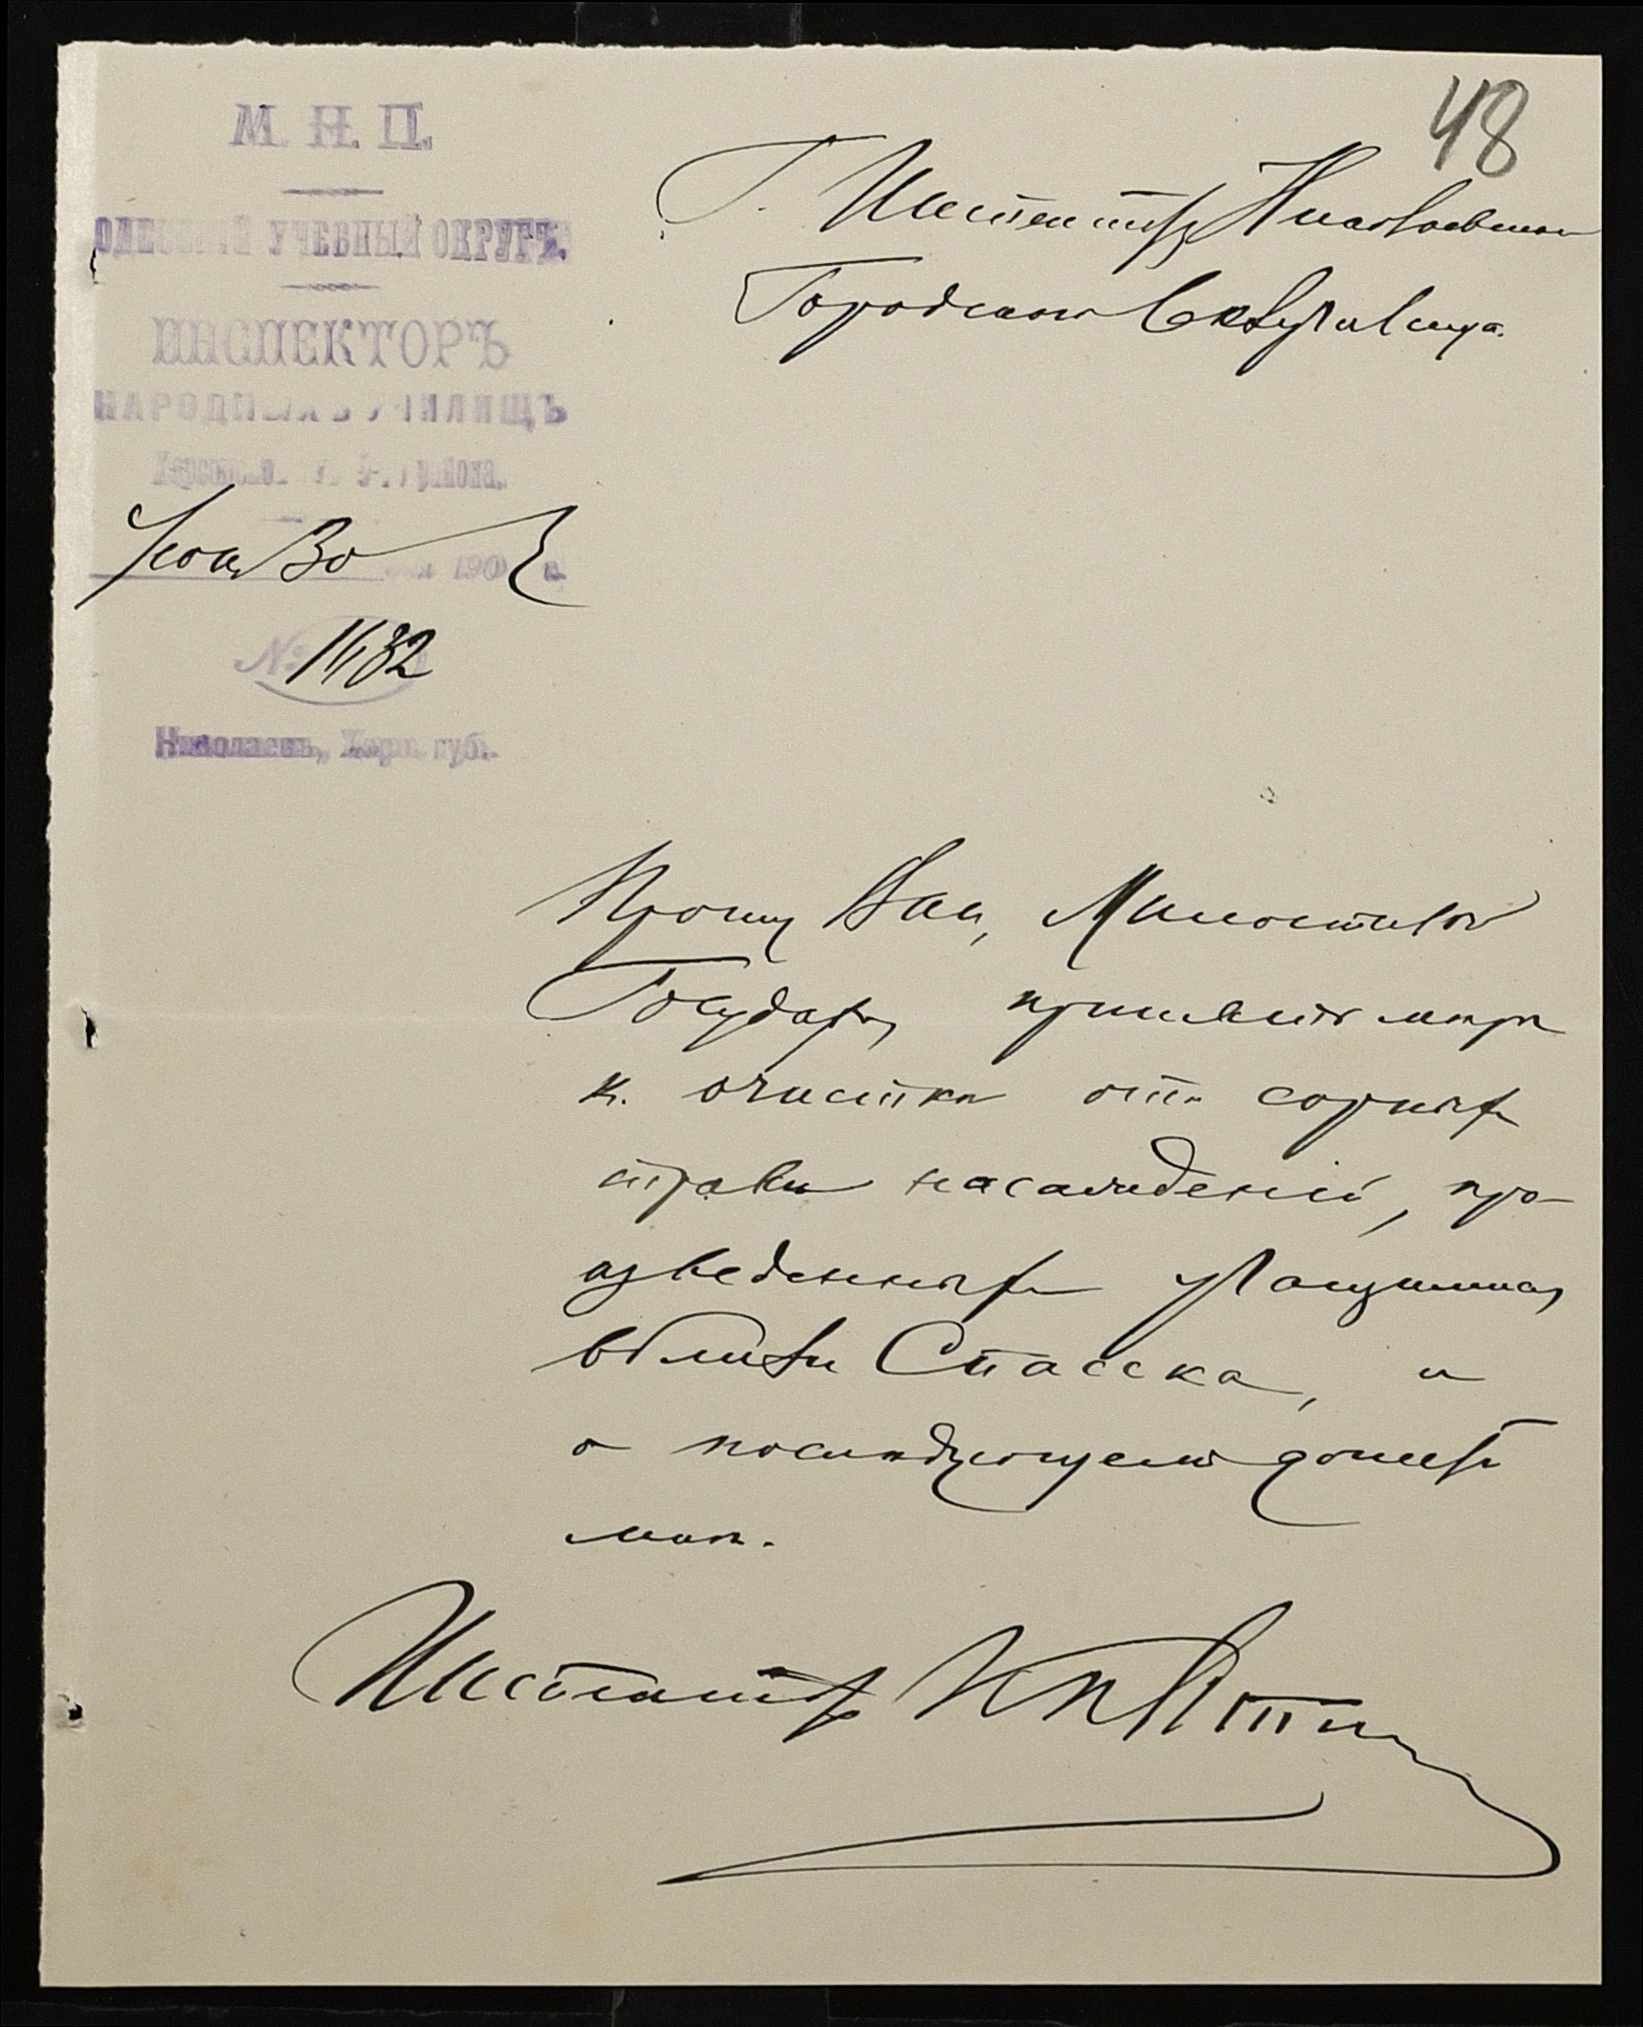 48
М. Н. П.
ОДЕССКІЙ УЧЕБНЫЙ ОКРУГЪ.
ИНСПЕКТОРЪ
НАРОДНЫХЪ УЧИЛИЩЪ
района.
30 190 г.
№ 1432
Николаевъ, Херс. губ.
Г. Инспектору Николаевскаго
Городского училища.
Прошу Васъ, Милостивый
Государь, принять мѣры
къ очисткѣ отъ сорныхъ
травъ насажденій, про-
изведенныхъ учащимися
вблизи Спасска, и
о послѣдующемъ донести
мнѣ.
Инспекторъ